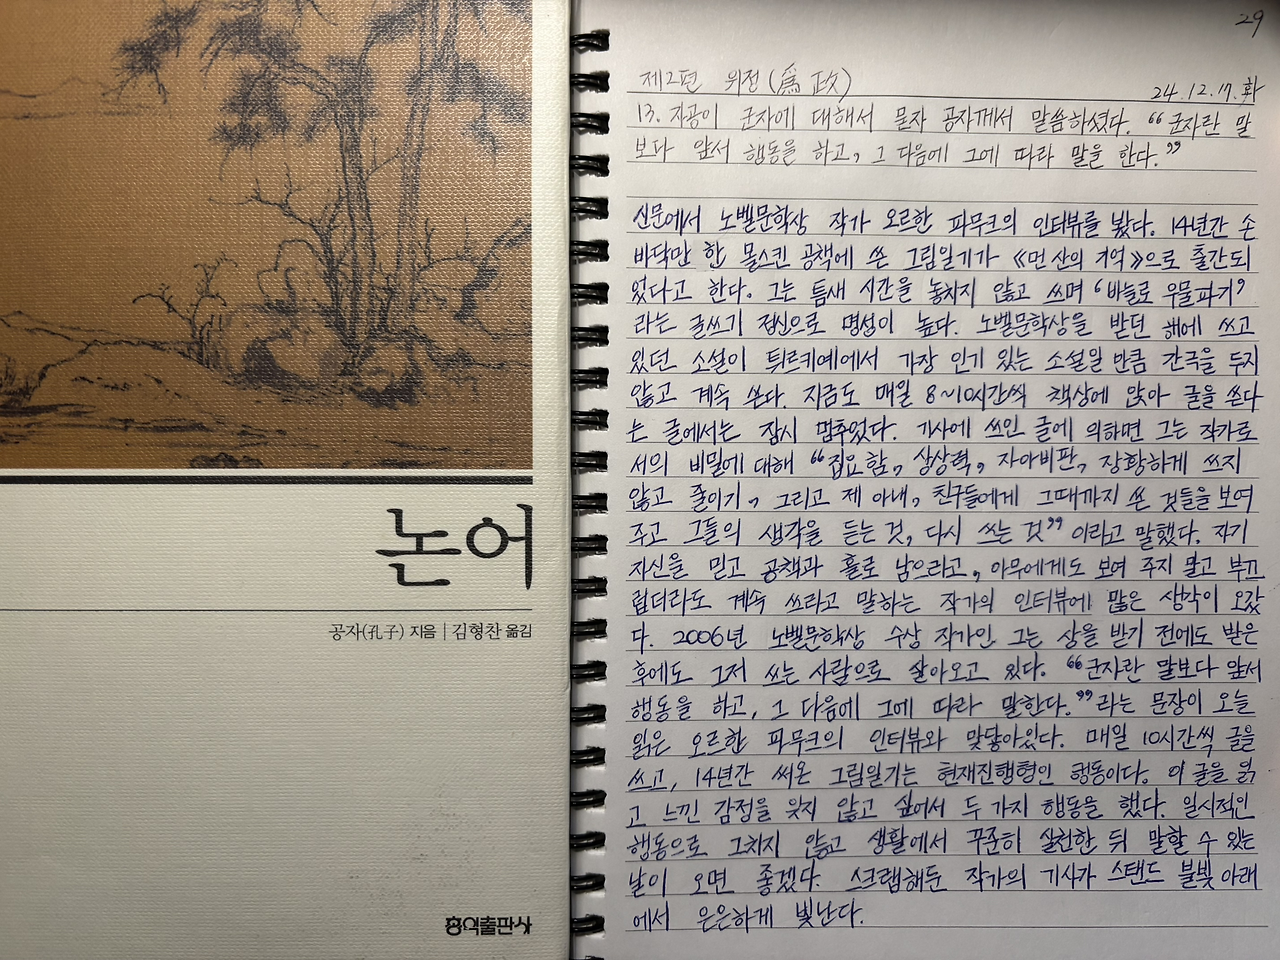 논어
공자(孔子) 지음 | 김형찬 옮김
홍익출판사
29
제2편 위정(爲政)
24.12.17.화
13. 자공이 군자에 대해서 묻자 공자께서 말씀하셨다. “군자란 말
보다 앞서 행동을 하고, 그 다음에 그에 따라 말을 한다.”
신문에서 노벨문학상 작가 오르한 파무크의 인터뷰를 봤다. 14년간 손
바닥만 한 몰스킨 공책에 쓴 그림일기가 《먼 산의 기억》으로 출간되
었다고 한다. 그는 틈새 시간을 놓치지 않고 쓰며 ‘바늘로 우물파기’
라는 글쓰기 정신으로 명성이 높다. 노벨문학상을 받던 해에 쓰고
있던 소설이 튀르키예에서 가장 인기 있는 소설일 만큼 간극을 두지
않고 계속 쓴다. 지금도 매일 8~10시간씩 책상에 앉아 글을 쓴다
는 글에서는 잠시 멈추었다. 기사에 쓰인 글에 의하면 그는 작가로
서의 비밀에 대해 “집요함, 상상력, 자아비판, 장황하게 쓰지
않고 줄이기, 그리고 제 아내, 친구들에게 그때까지 쓴 것들을 보여
주고 그들의 생각을 듣는 것, 다시 쓰는 것” 이라고 말했다. 자기
자신을 믿고 공책과 홀로 남으라고, 아무에게도 보여 주지 말고 부끄
럽더라도 계속 쓰라고 말하는 작가의 인터뷰에 많은 생각이 오갔
다. 2006년 노벨문학상 수상 작가인 그는 상을 받기 전에도 받은
후에도 그저 쓰는 사람으로 살아오고 있다. “군자란 말보다 앞서
행동을 하고, 그 다음에 그에 따라 말한다.”라는 문장이 오늘
읽은 오르한 파무크의 인터뷰와 맞닿아있다. 매일 10시간씩 글을
쓰고, 14년간 써온 그림일기는 현재진행형인 행동이다. 이 글을 읽
고 느낀 감정을 잊지 않고 싶어서 두 가지 행동을 했다. 일시적인
행동으로 그치지 않고 생활에서 꾸준히 실천한 뒤 말할 수 있는
날이 오면 좋겠다. 스크랩해둔 작가의 기사가 스탠드 불빛 아래
에서 은은하게 빛난다.